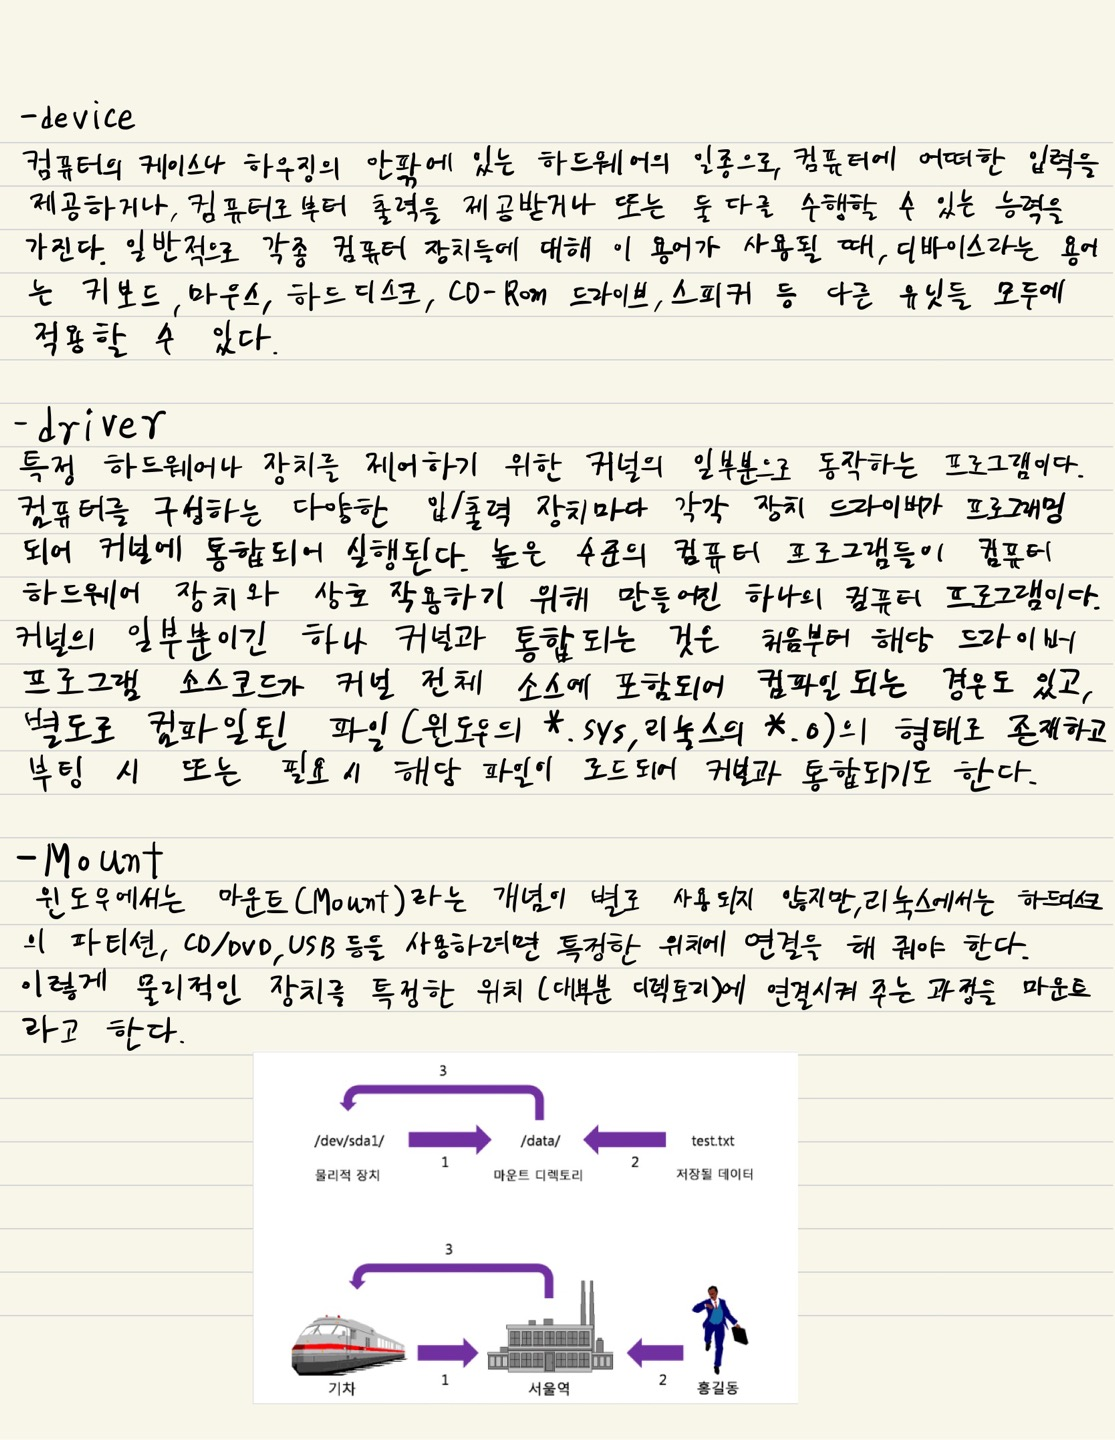 -device
컴퓨터의 케이스나 하우징의 안팎에 있는 하드웨어의 일종으로, 컴퓨터에 어떠한 입력을
제공하거나, 컴퓨터로부터 출력을 제공받거나 또는 둘 다를 수행할 수 있는 능력을
가진다. 일반적으로 각종 컴퓨터 장치들에 대해 이 용어가 사용될 때, 디바이스라는 용어
는 키보드, 마우스, 하드디스크, CD-Rom 드라이브, 스피커 등 다른 유닛들 모두에
적용할 수 있다.
-driver
특정 하드웨어나 장치를 제어하기 위한 커널의 일부분으로 동작하는 프로그램이다.
컴퓨터를 구성하는 다양한 입/출력 장치마다 각각 장치 드라이버가 프로그래밍
되어 커널에 통합되어 실행된다. 높은 수준의 컴퓨터 프로그램들이 컴퓨터
하드웨어 장치와 상호 작용하기 위해 만들어진 하나의 컴퓨터 프로그램이다.
커널의 일부분이긴 하나 커널과 통합되는 것은 처음부터 해당 드라이버
프로그램 소스코드가 커널 전체 소스에 포함되어 컴파일되는 경우도 있고,
별도로 컴파일된 파일(윈도우의 *.sys, 리눅스의 *.o)의 형태로 존재하고
부팅 시 또는 필요시 해당 파일이 로드되어 커널과 통합되기도 한다.
-Mount
윈도우에서는 마운트(Mount)라는 개념이 별로 사용되지 않지만, 리눅스에서는 하드디스크
의 파티션, CD/DVD, USB 등을 사용하려면 특정한 위치에 연결을 해 줘야 한다.
이렇게 물리적인 장치를 특정한 위치(대부분 디렉토리)에 연결시켜 주는 과정을 마운트
라고 한다.
3
/dev/sda1/ /data/ test.txt
1 2
물리적 장치 마운트 디렉토리 저장될 데이터
3
1 2
기차 서울역 홍길동